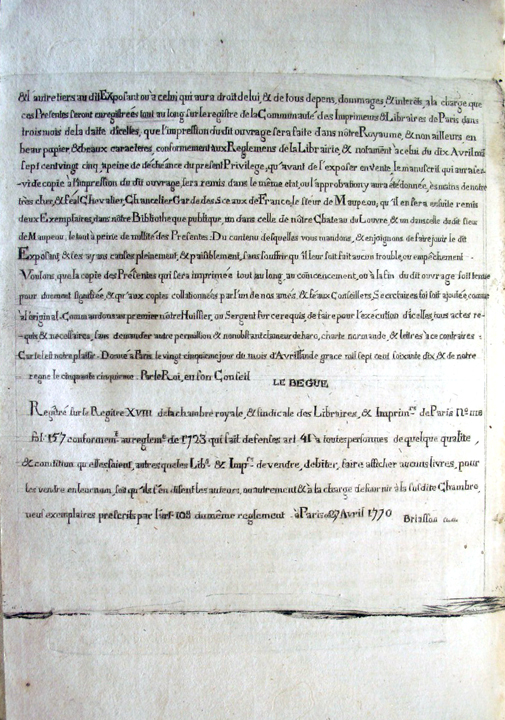 &à autre tiers au dit Exposant ou à celui qui aura droit de lui, & de tous depens, dommages & interêts, a la charge que
ces Presentes seront enregistrées tout au long sur le registre de la Communauté des Imprimeurs & Libraires de Paris dans
trois mois de la date d'icelles, que l'impression du dit ouvrage sera faite dans nôtre Royaume, & non ailleurs en
beau papier & beaux caracteres, conformement aux Reglemens de la Librairie, & notament à celui du dix Avril mil
sept cent vingt cinq, a peine de déchéance du present Privilege, qu'avant de l'exposer en vente, le manuscrit qui aura ser-
-vi de copie à l'impression du dit ouvrage, sera remis dans le même etat, ou l'approbation y aura été donnée, ès mains de notre
très cher, & féal Chevalier, Chancelier Garde des Sceaux de France, le sieur de Maupeou, qu'il en sera ensuite remis
deux Exemplaires, dans nôtre Bibliotheque publique, un dans celle de nôtre Chateau du Louvre, & un dans celle du dit sieur
de Maupeou, le tout à peine de nullité des Presentes: Du contenu desquelles vous mandons, & enjoignons de faire jouir le dit
Exposant, & ses ayans causes pleinement, & paisiblement, sans souffrir qu'il leur soit fait aucun trouble, ou empêchement
Voulons, que la copie des Présentes qui sera imprimée tout au long, au commencement, ou à la fin du dit ouvrage soit tenue
pour duement signifiée, & qu'aux copies collationnées par l'un de nos amés, & féaux Conseillers, Secretaires foi soit ajoutée, comme
à l'original. Commandons au premier nôtre Huissier, ou Sergent sur ce requis, de faire pour l'execution d'icelles, tous actes re-
-quis & necessaires, sans demander autre permission & nonobstant clameur de haro, charte normande, & lettres à ce contraires:
Car tel est notre plaisir. Donné à Paris le vingt cinquieme jour du mois d'Avril l'an de grace mil sept cent soixante dix, & de notre
regne le cinquante cinquieme. Par le Roi, en son Conseil
LE BEGUE
Régîtré sur le Regître XVIII de la chambre royale, & sindicale des Libraires, & Imprimrs de Paris No 1118
fol 157 conformemt au reglemt de 1723 qui fait defenses art 41 a toutes personnes de quelque qualite,
& condition qu'elles soient, autres que les Libs & Imprs de vendre, debiter, faire afficher aucuns livres, pour
les vendre en leur nom, soit qu'ils s'en disent les auteurs, ou autrement & à la charge de fournir à la susdite Chambre,
neuf exemplaires prescrits par l'art 108 du même reglement à Paris ce 27 Avril 1770
Briasson